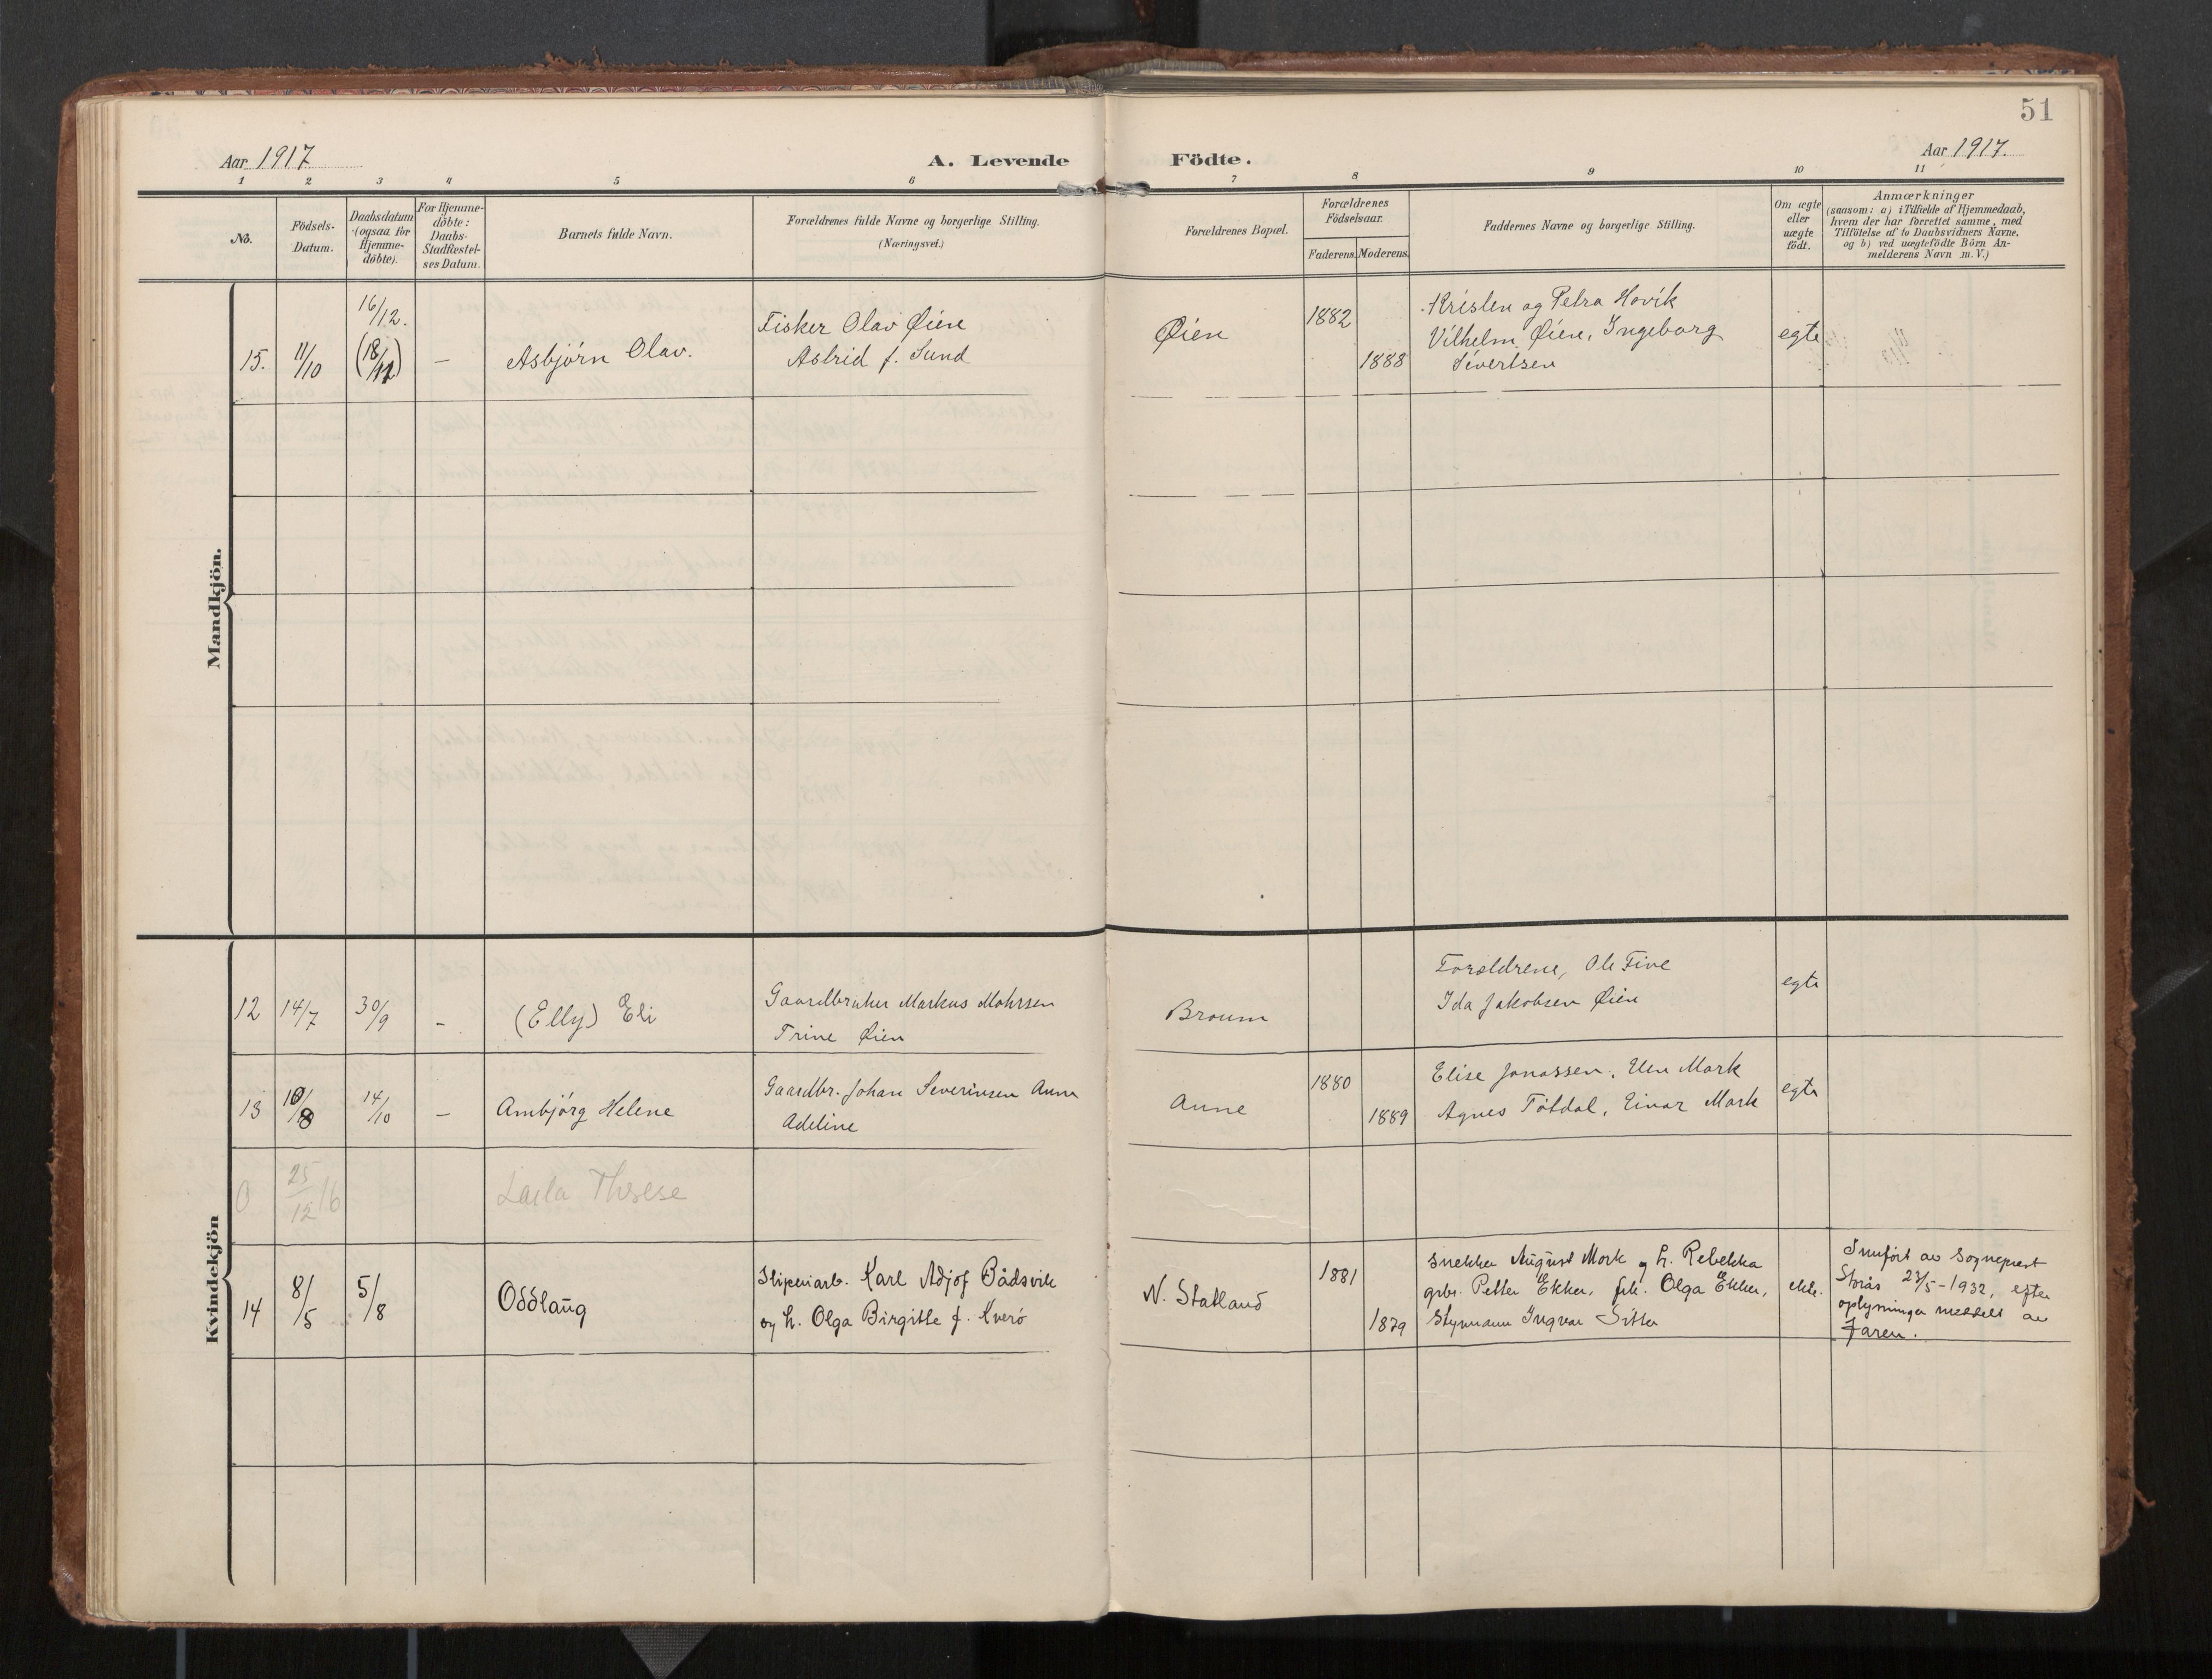 51
Aar 1917
A. Levende
Födte.
Aar 1917.
1 2 3 4 5 6 7 8 9 10 11
No.
Födsels-
Datum.
Daabsdatum
(ogsaa for
Hjemme-
döbte).
For Hjemme-
döbte:
Daabs-
Stadfæstel-
ses Datum.
Barnets fulde Navn.
Forældrenes fulde Navne og borgerlige Stilling.
(Næringsvei.)
Forældrenes Bopæl.
Forældrenes
Födselsaar.
Faderens. Moderens.
Faddernes Navne og borgerlige Stilling.
Om ægte
eller
uægte
födt.
Anmærkninger
(saasom: a) i Tilfælde af Hjemmedaab,
hvem der har forrettet samme, med
Tilföielse af to Daabsvidners Navne,
og b) ved uægtefödte Börn An-
melderens Navn m. V.)
Mandkjön.
15.
11/10
16/12.
(18/11)
–
Asbjörn Olav.
Fisker Olav Øien
Astrid f. Sund
Øien
1882
1883
Kristen og Petra Hovik
Vilhelm Øien, Ingeborg
Sivertsen
egte
Kvindekjön
12
14/7
30/9
–
(Elly) Eli
Gaardbruker Markus Mohrsen
Trine Øien
Broum
Forældrene, Ole Five
Ida Jakobsen Øien
egte
13
10/8
14/10
–
Ambjörg Helene
Gaardbr. Johan Severinsen Aune
Adeline
Aune
1880
1889
Elise Jonassen, Elen Mork
Agnes Tötdal, Einar Mork
egte
0
25/12 16
Laila Therese
14
8/5
5/8
Oddlaug
Slipeniarb. Karl Adjof Bådsvik
og h. Olga Birgitte f. Kverö
N. Statland
1881
1879
Snekker August Mork og h. Rebekka
grbr. Petter Ekker, frk. Olga Ekker,
Styrmann Ingvar Sitter
ekte.
Innfört av Sogneprest
Storås 23/5-1932, efter
oplysninger meddelt av
Faren.